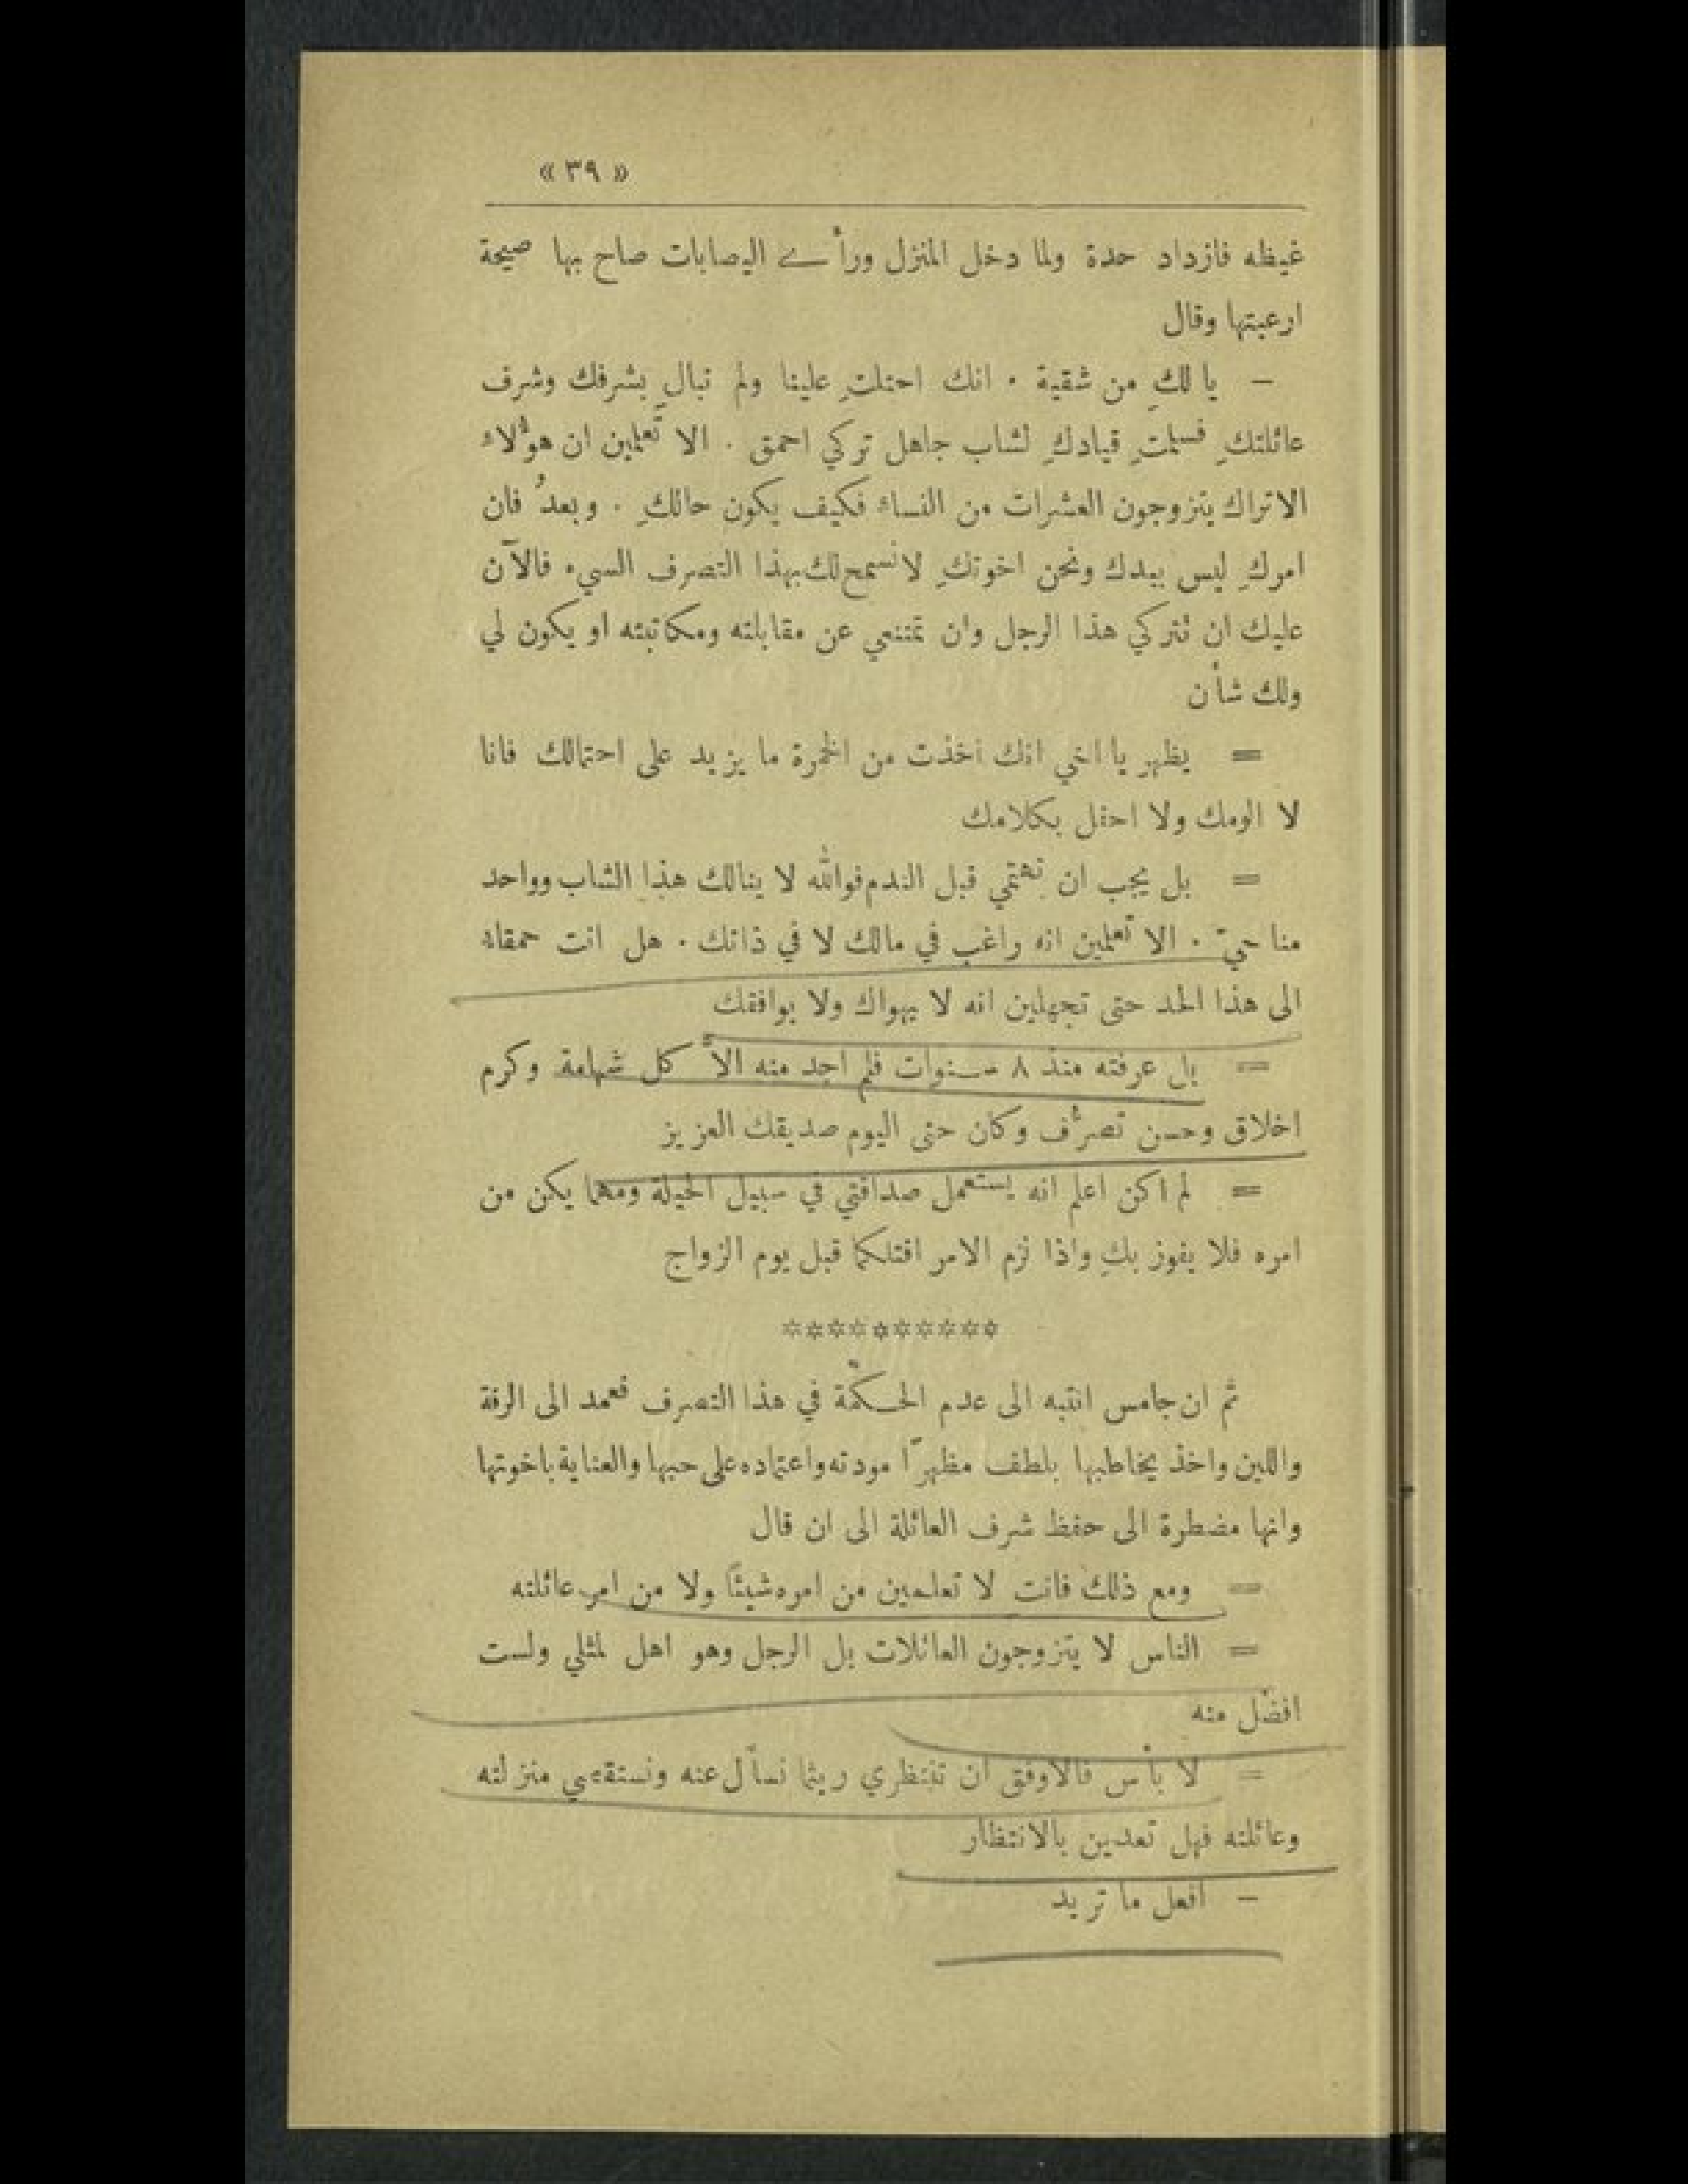 « ٣٩ »
غيظه فازداد حدة ولما دخل المنزل ورأى اليصابات صاح بها صيحة
ارعبتها وقال
– يا لكِ من شقية . انك احتلتِ علينا ولم تبالِ بشرفك وشرف
عائلتكِ فسلمتِ قيادكِ لشاب جاهل تركي احمق . الا تعلمين ان هؤلاء
الاتراك يتزوجون العشرات من النساء فكيف يكون حالكِ . وبعدُ فان
امركِ ليس بيدك ونحن اخوتكِ لا نسمح لك بهذا التصرف السيء فالآن
عليك ان تتركي هذا الرجل وان تمتنعي عن مقابلته ومكاتبته او يكون لي
ولك شأن
= يظهر يا اخي انك اخذت من الخمرة ما يزيد على احتمالك فانا
لا الومك ولا احفل بكلامك
= بل يجب ان تهتمي قبل الندم فوالله لا ينالك هذا الشاب وواحد
منا حيّ . الا تعلمين انه راغب في مالك لا في ذاتك . هل انت حمقاء
الى هذا الحد حتى تجهلين انه لا يهواك ولا يوافقك
= بل عرفته منذ ٨ سنوات فلم اجد منه الاَّ كل شهامة وكرم
اخلاق وحسن تصرُّف وكان حتى اليوم صديقك العزيز
= لم اكن اعلم انه يستعمل صداقتي في سبيل الحيلة ومهما يكن من
امره فلا يفوز بكِ واذا لزم الامر اقتلكما قبل يوم الزواج
**********
ثم ان جامس انتبه الى عدم الحكمة في هذا التصرف فعمد الى الرقة
واللين واخذ يخاطبها بلطف مظهرًا مودته واعتماده على حبها والعناية باخوتها
وانها مضطرة الى حفظ شرف العائلة الى ان قال
= ومع ذلك فانتِ لا تعلمين من امره شيئًا ولا من امر عائلته
= الناس لا يتزوجون العائلات بل الرجل وهو اهل لمثلي ولست
افضل منه
= لا بأس فالاوفق ان تنتظري ريثما نسأل عنه ونستقصي منزلته
وعائلته فهل تعدين بالانتظار
– افعل ما تريد